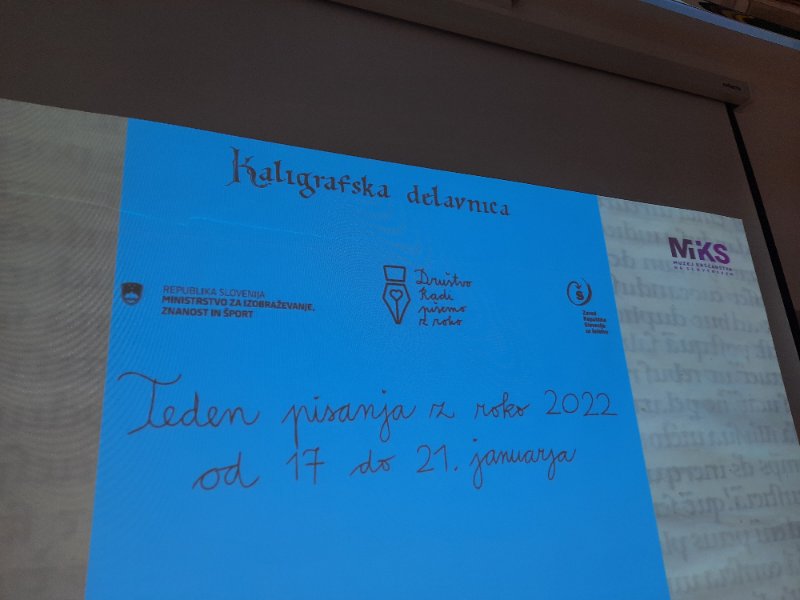 Kaligrafska delavnica
MiKS
MUZEJ KRŠČANSTVA
NA SLOVENSKEM
REPUBLIKA SLOVENIJA
MINISTRSTVO ZA IZOBRAŽEVANJE,
ZNANOST IN ŠPORT
Društvo
Radi
pišemo
z roko
Zavod
Republike
Slovenije
za šolstvo
Teden pisanja z roko 2022
od 17 do 21. januarja